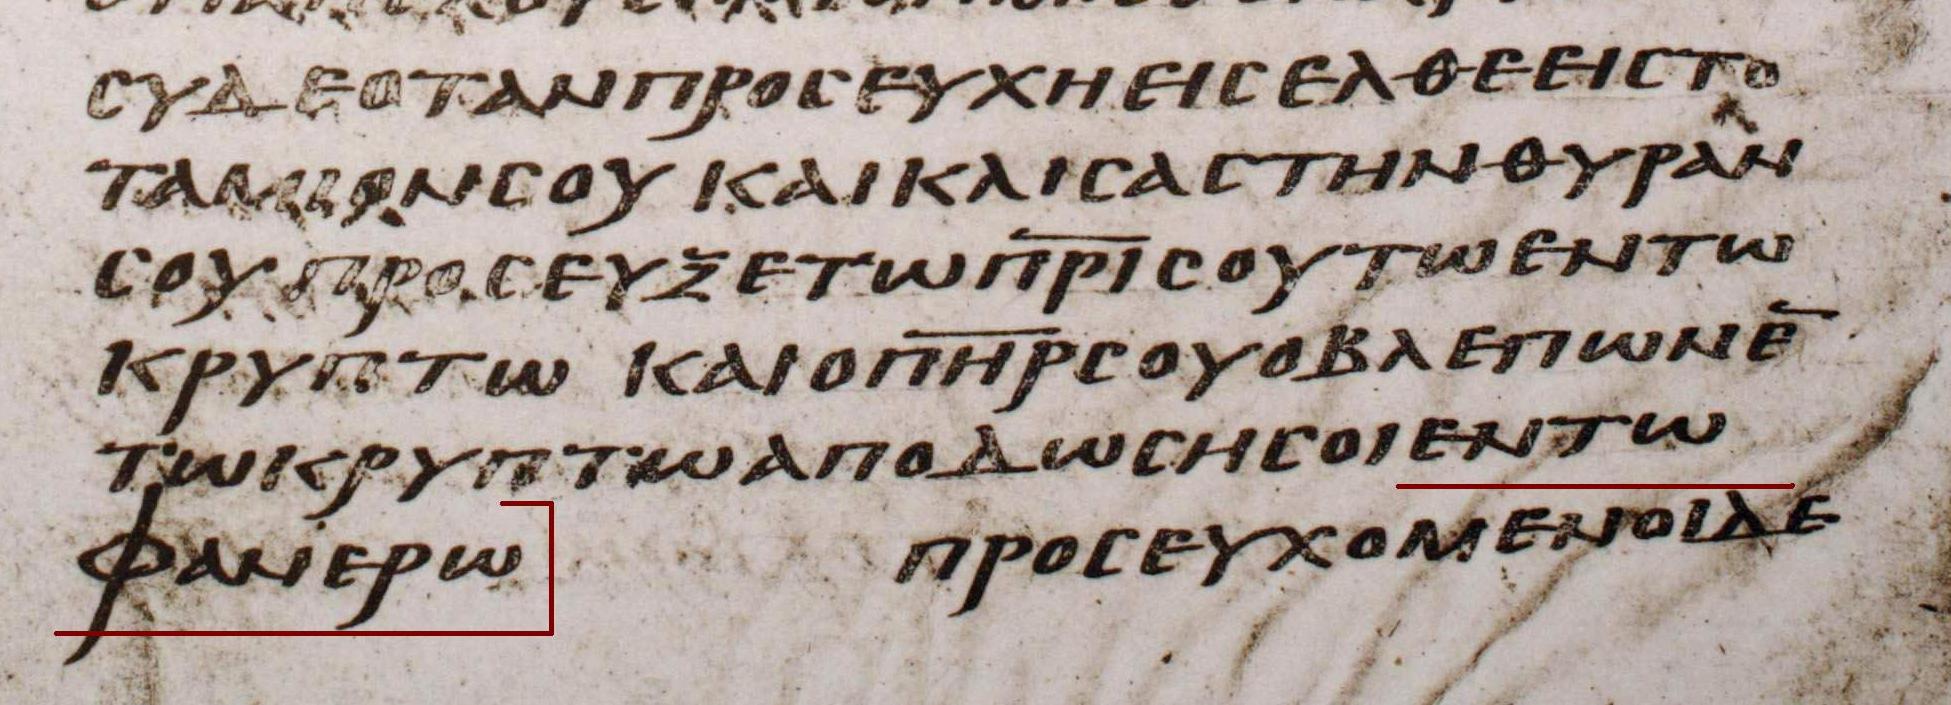 ϹΥΔΕΟΤΑΝΠΡΟϹΕΥΧΗΕΙϹΕΛΘΕΕΙϹΤΟ
ΤΑΜΙΟΝϹΟΥ ΚΑΙΚΛΙϹΑϹΤΗΝΘΥΡΑΝ
ϹΟΥΠΡΟϹΕΥΞΕΤΩΠ̅Ρ̅Ι̅ϹΟΥΤΩΕΝΤΩ
ΚΡΥΠΤΩ ΚΑΙΟΠ̅Η̅Ρ̅ϹΟΥΟΒΛΕΠΩΝΕ̅
ΤΩΚΡΥΠΤΩΑΠΟΔΩϹΗϹΟΙΕΝΤΩ
ΦΑΝΕΡΩ ΠΡΟϹΕΥΧΟΜΕΝΟΙΔΕ